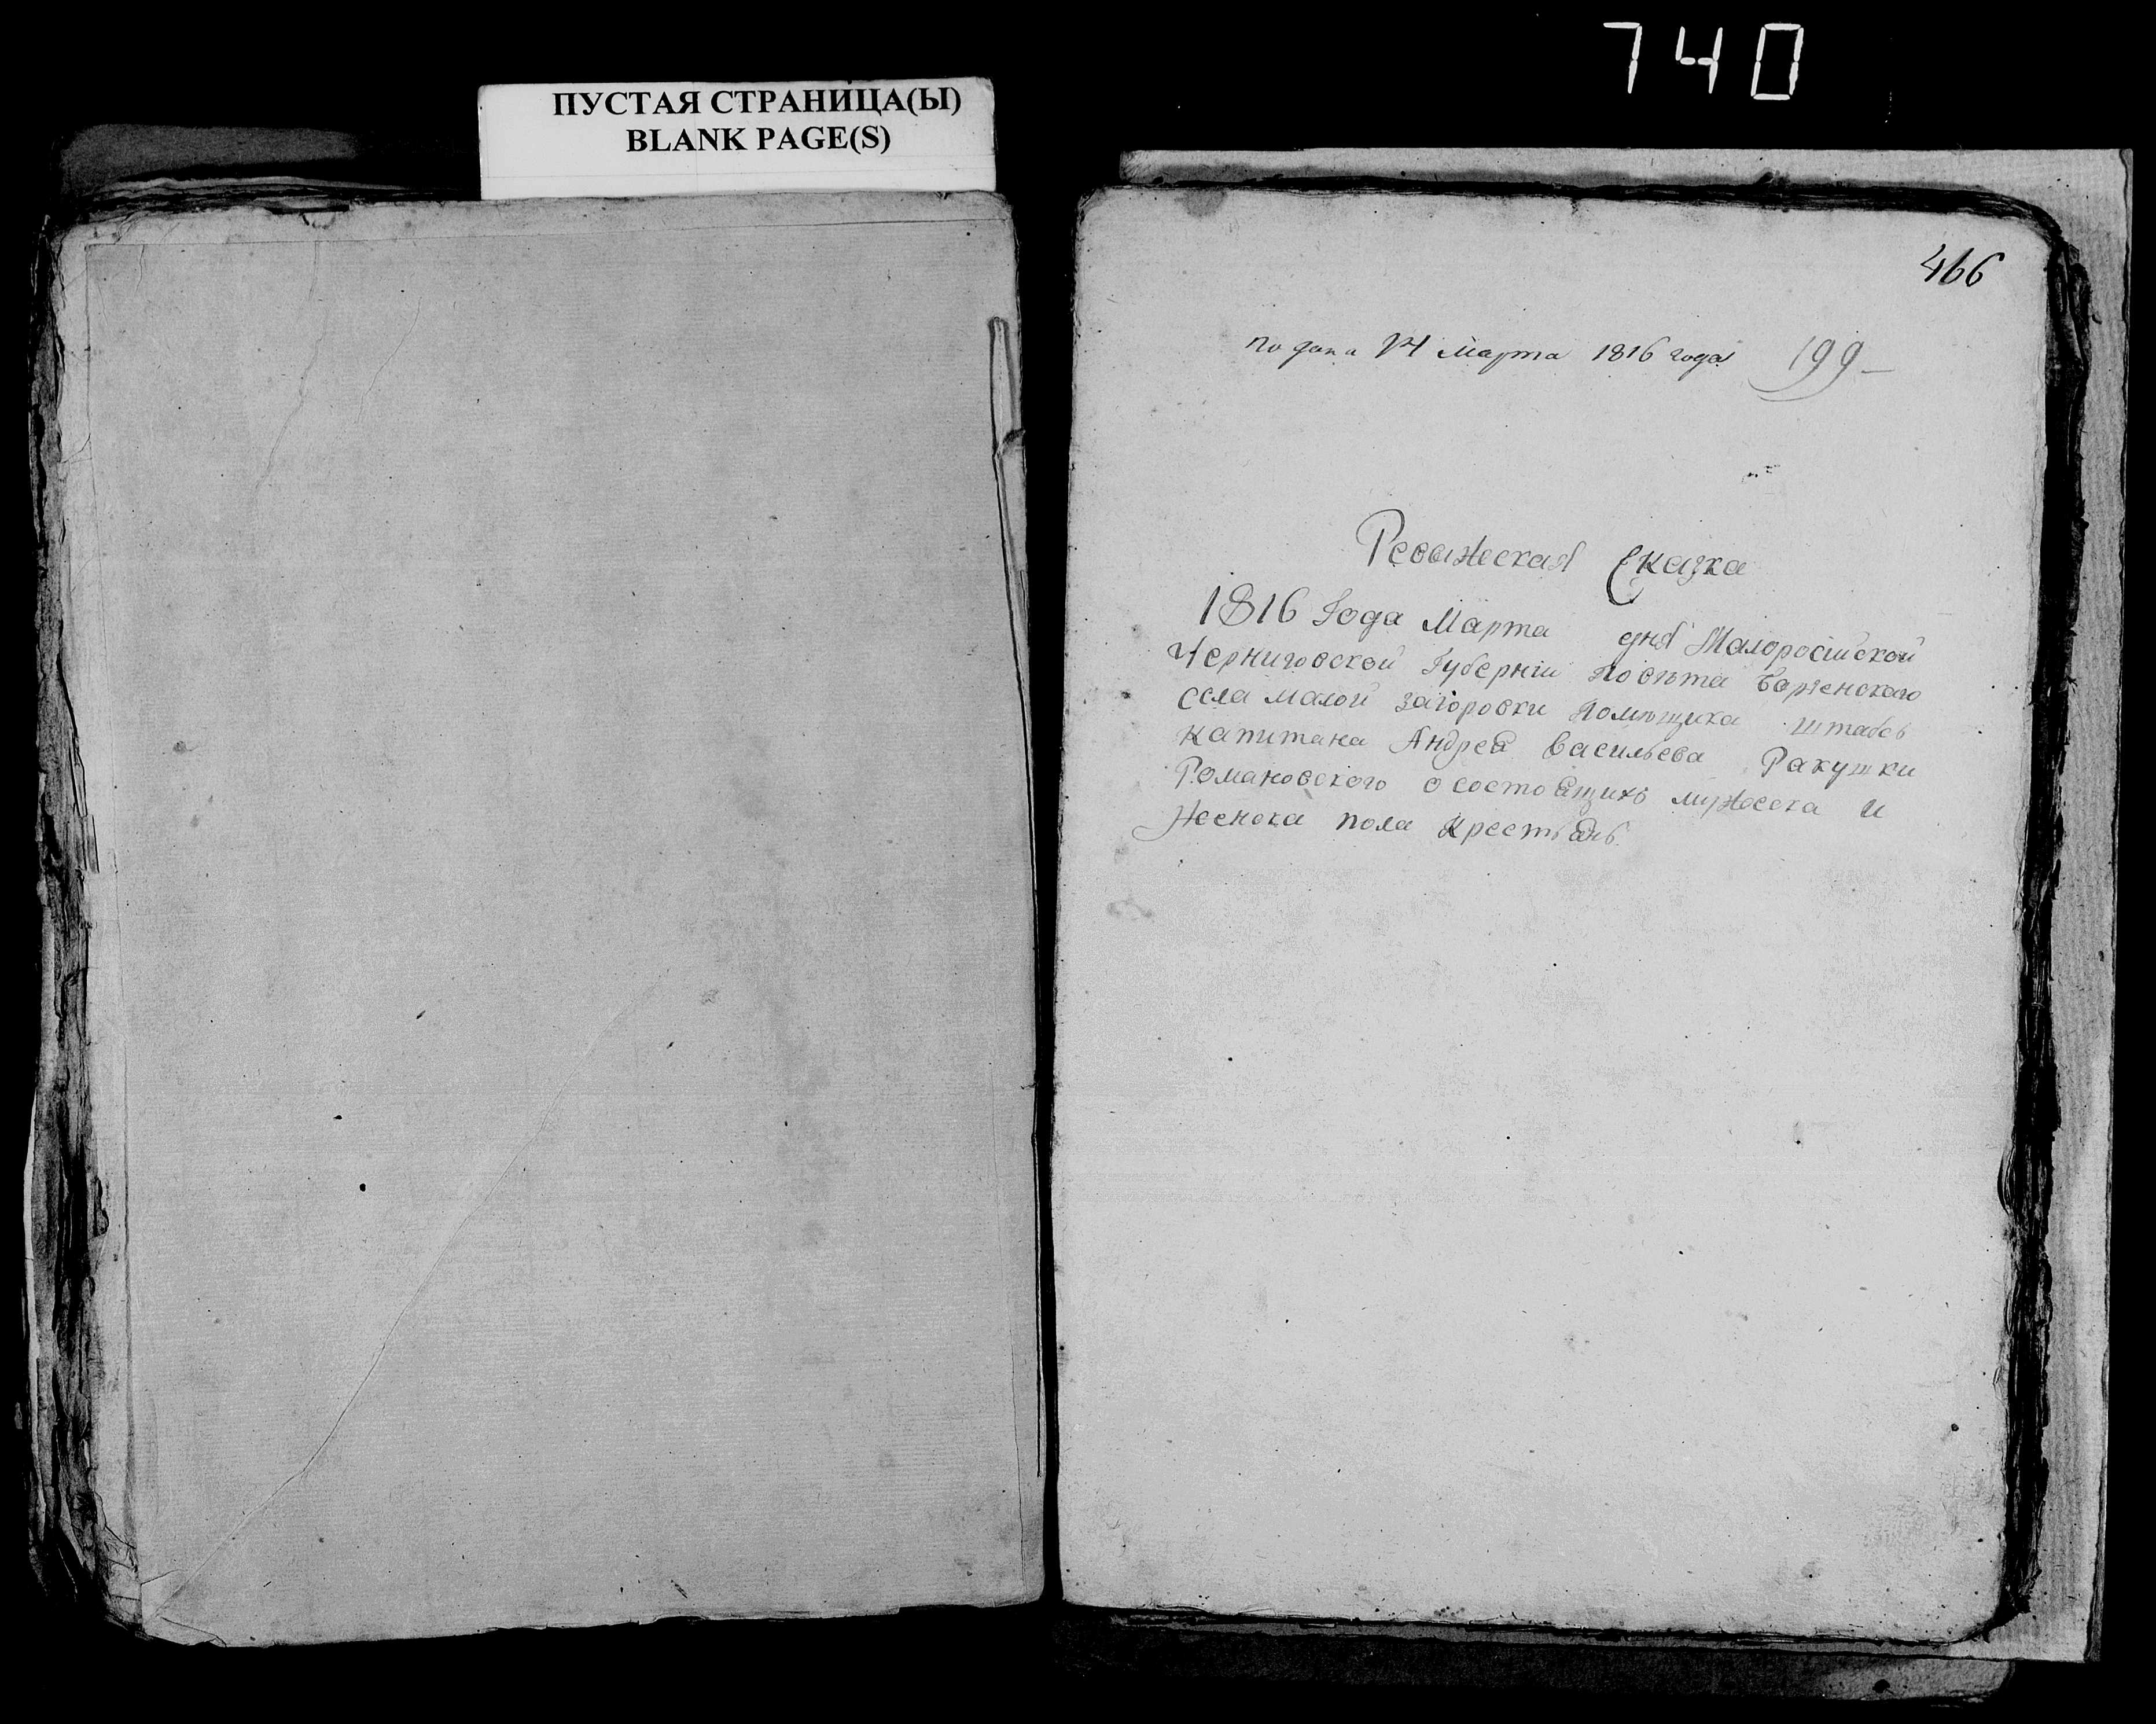 740
ПУСТАЯ СТРАНИЦА(Ы)
BLANK PAGE(S)
466
подана 14 Марта 1816 года 199
Ревижская Сказка
1816 Года Марта дня Малоросійской
Черниговской Губерніи Повѣта Борзенского
села малой загоровки помѣщика штабсъ
капитана Андрея Васильева Ракушки
Романовского о состоящихъ мужеска и
женска пола Крестьянъ